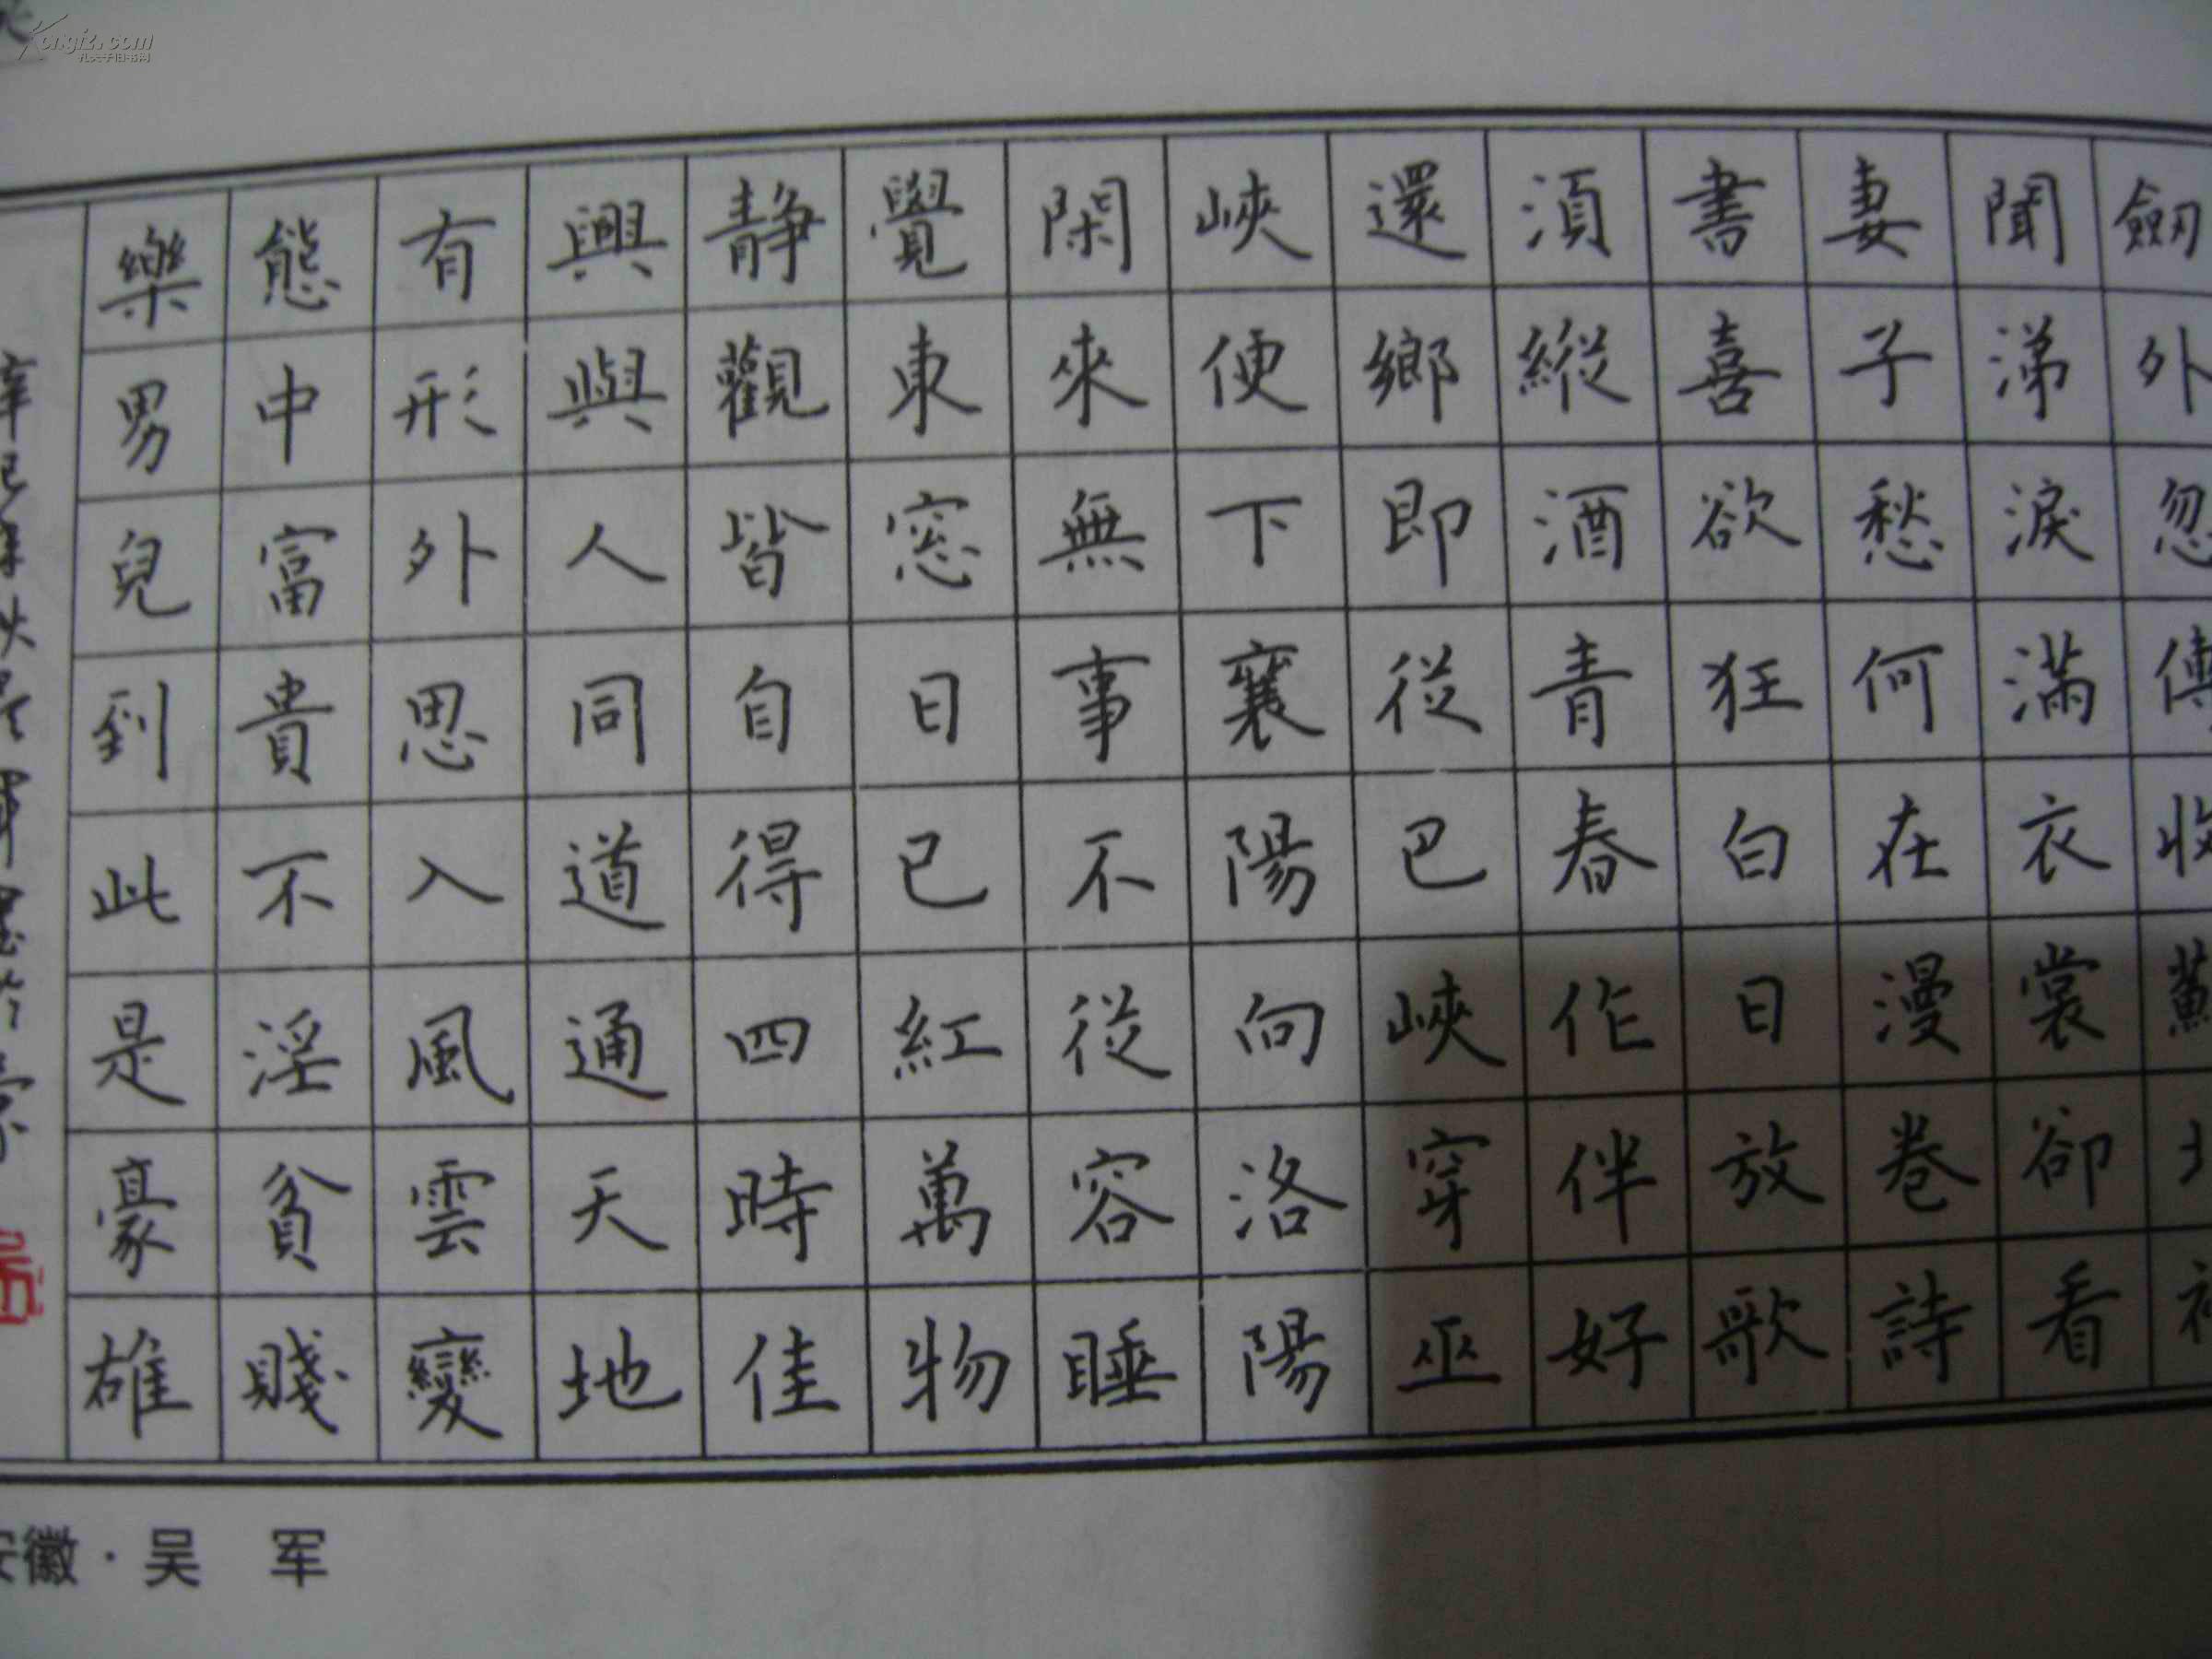 劒外忽傳收薊北初
聞涕淚滿衣裳卻看
妻子愁何在漫卷詩
書喜欲狂白日放歌
須縱酒青春作伴好
還鄉即從巴峽穿巫
峽便下襄陽向洛陽
閑來無事不從容睡
覺東窓日已紅萬物
靜觀皆自得四時佳
興與人同道通天地
有形外思入風雲變
態中富貴不淫貧賤
樂男兒到此是豪雄
安徽·吴 军
Kongfz.com
孔夫子旧书网